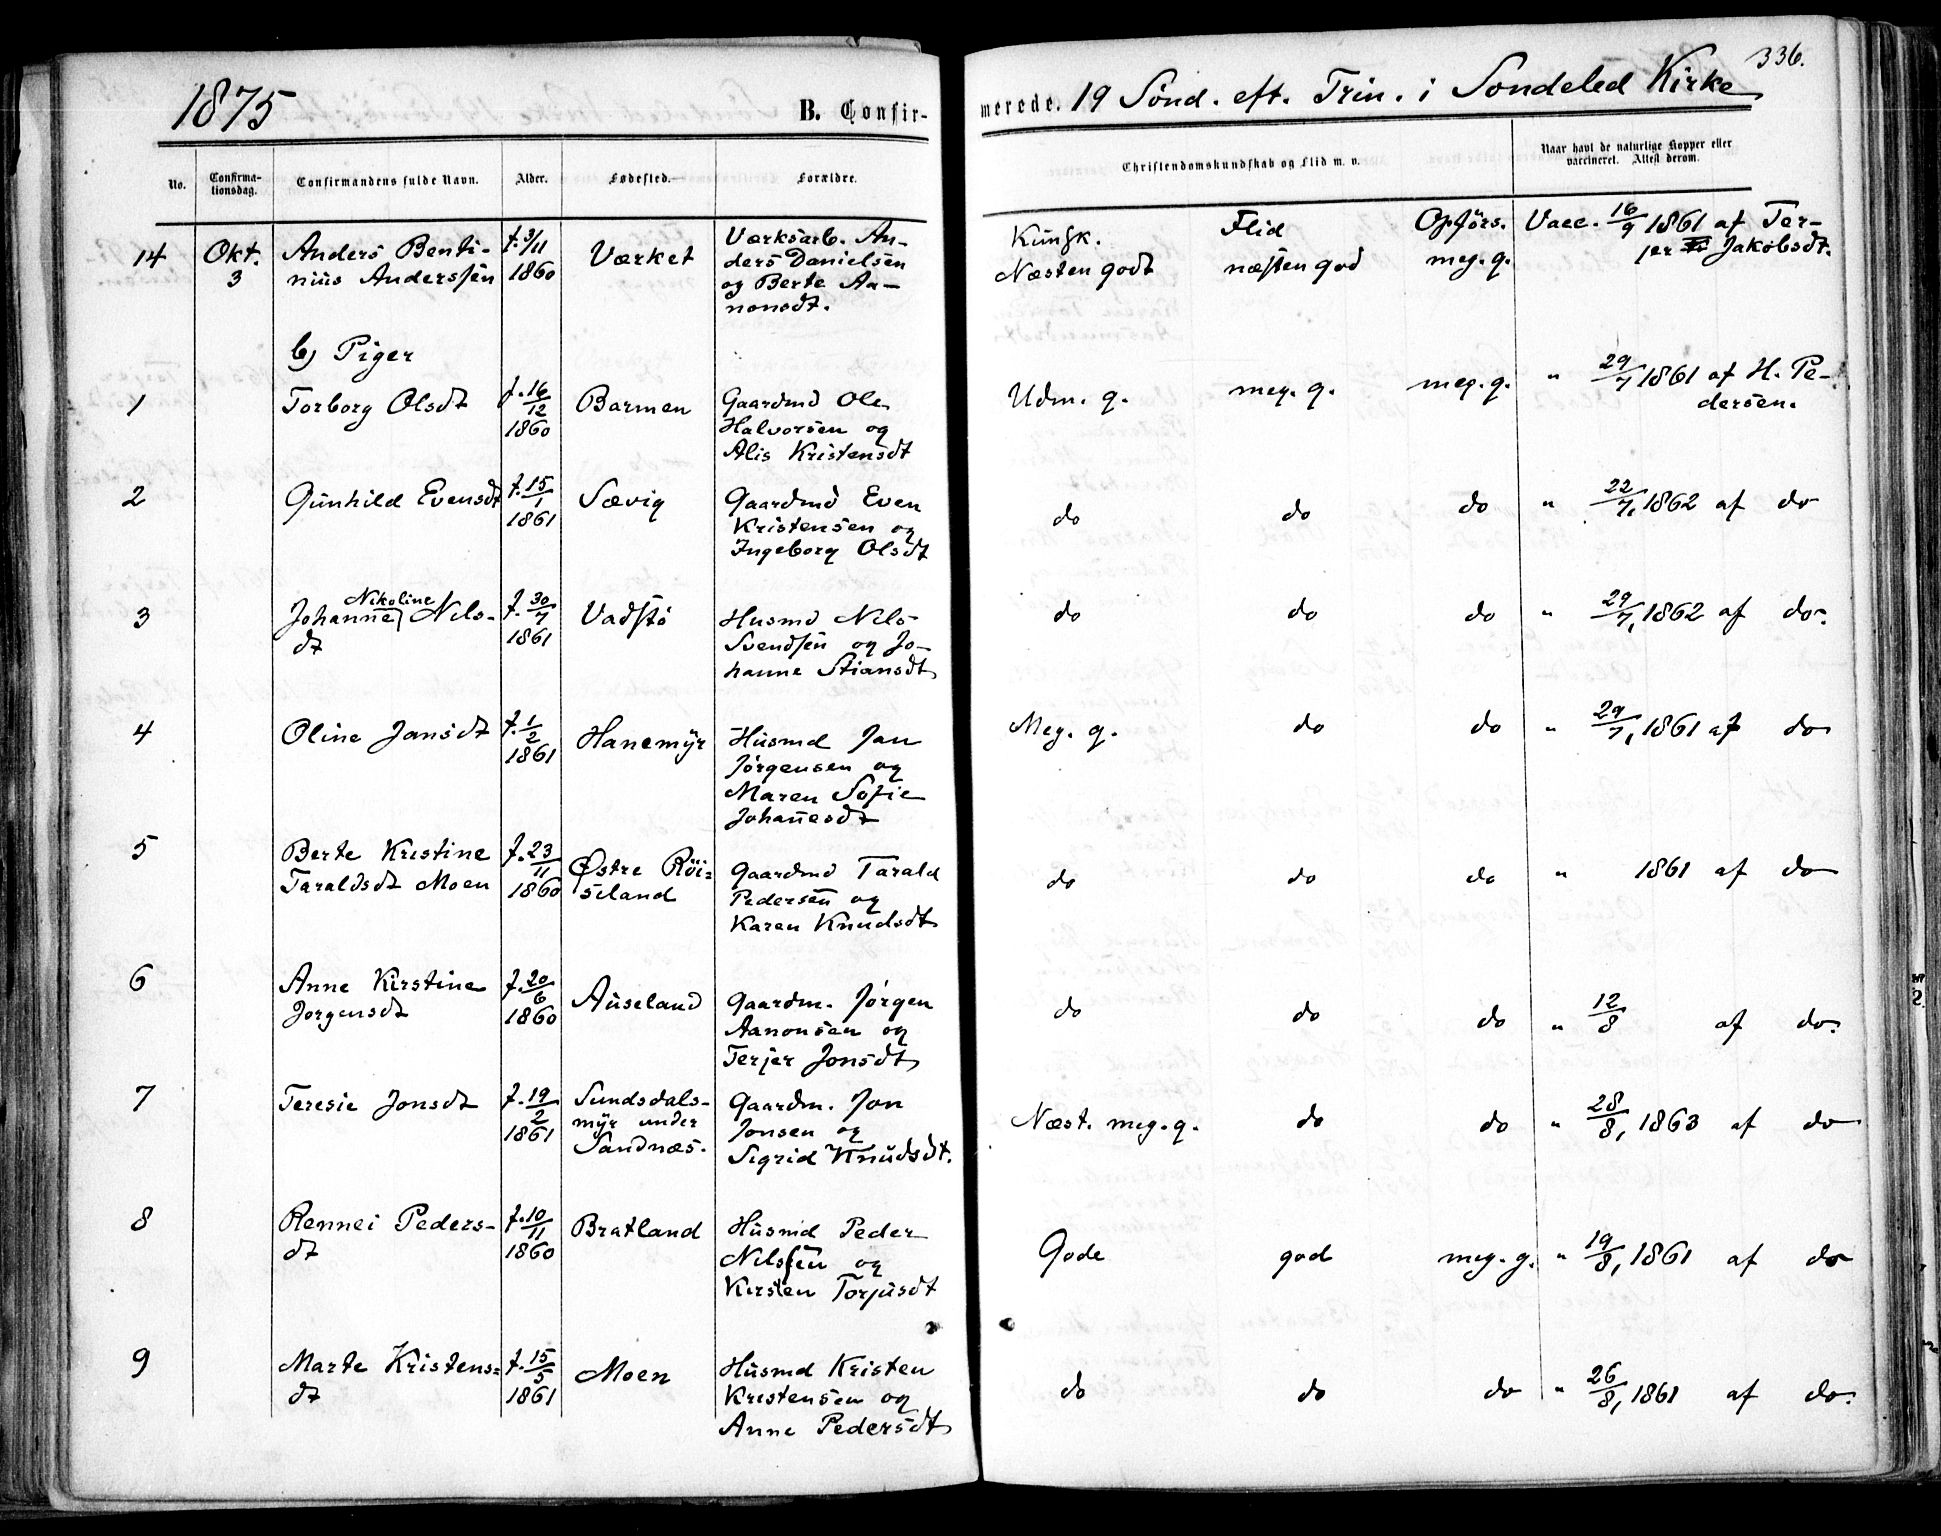 336.
1875 B. Confirmerede. 19 Sönd. eft. Trin. i Sondeled Kirke
No. Confirmationsdag. Confirmandens fulde Navn. Alder. Fødested. Forældre. Christendomskundskab og Flid m. v. Naar havt de naturlige Kopper eller vaccineret. Attest derom.
14 Okt. 3
Anders Benti-
nius Anderssen
f. 3/11
1860
Værket
Værksarb. An-
ders Danielsen
og Berte Aa-
nonsdt.
Kundsk. Næsten godt
Flid næsten god
Opförs. meg. g.
Vacc. 16/9 1861 af Ter-
jer Jakobsdt.
b) Piger
1
Torborg Olsdt
f. 16/12
1860
Barmen
Gaardmd Ole
Halvorsen og
Alis Kristensdt
Udm. g. meg. g. meg. g.
" 29/7 1861 af H. Pe-
dersen.
2
Gunhild Evensdt
f. 15/1
1861
Sævig
Gaardmd Even
Kristensen og
Ingeborg Olsdt
do do do " 22/7, 1862 af do
3
Nikoline
Johanne Nils-
dt
f. 30/7
1861
Vadstö
Husmd Nils
Svendsen og Jo-
hanne Stiansdt
do do do " 29/7, 1862 af do.
4
Oline Jansdt
f. 1/2
1861
Hanemyr
Husmd Jan
Jörgensen og
Maren Sofie
Johanesdt
Meg. g. do do " 29/7, 1861 af do
5
Berte Kristine
Taraldsdt Moen
f. 23/11
1860
Østre Röi=
seland
Gaardmd Tarald
Pedersen og
Karen Knudsdt
do do do " 1861 af do
6
Anne Kirstine
Jorgensdt
f. 20/6
1860
Auseland
Gaardm. Jörgen
Aanonsen og
Terjer Jonsdt
do do do " 12/8 af do.
7
Teresie Jonsdt
f. 19/2
1861
Sundsdals-
myr under
Sandnæs.
Gaardm. Jon
Jonsen og
Sigrid Knudsdt.
Næst. meg. g. do do " 28/8, 1863 af do
8
Rennei Peders-
dt
f. 10/11
1860
Bratland
Husmd Peder
Nilssen og
Kirsten Torjusdt
Gode god meg. g. " 19/8, 1861 af do
9
Marte Kristens=
dt
f. 15/5
1861
Moen
Husmd Kristen
Kristensen og
Anne Pedersdt
do do do " 26/8, 1861 af do.